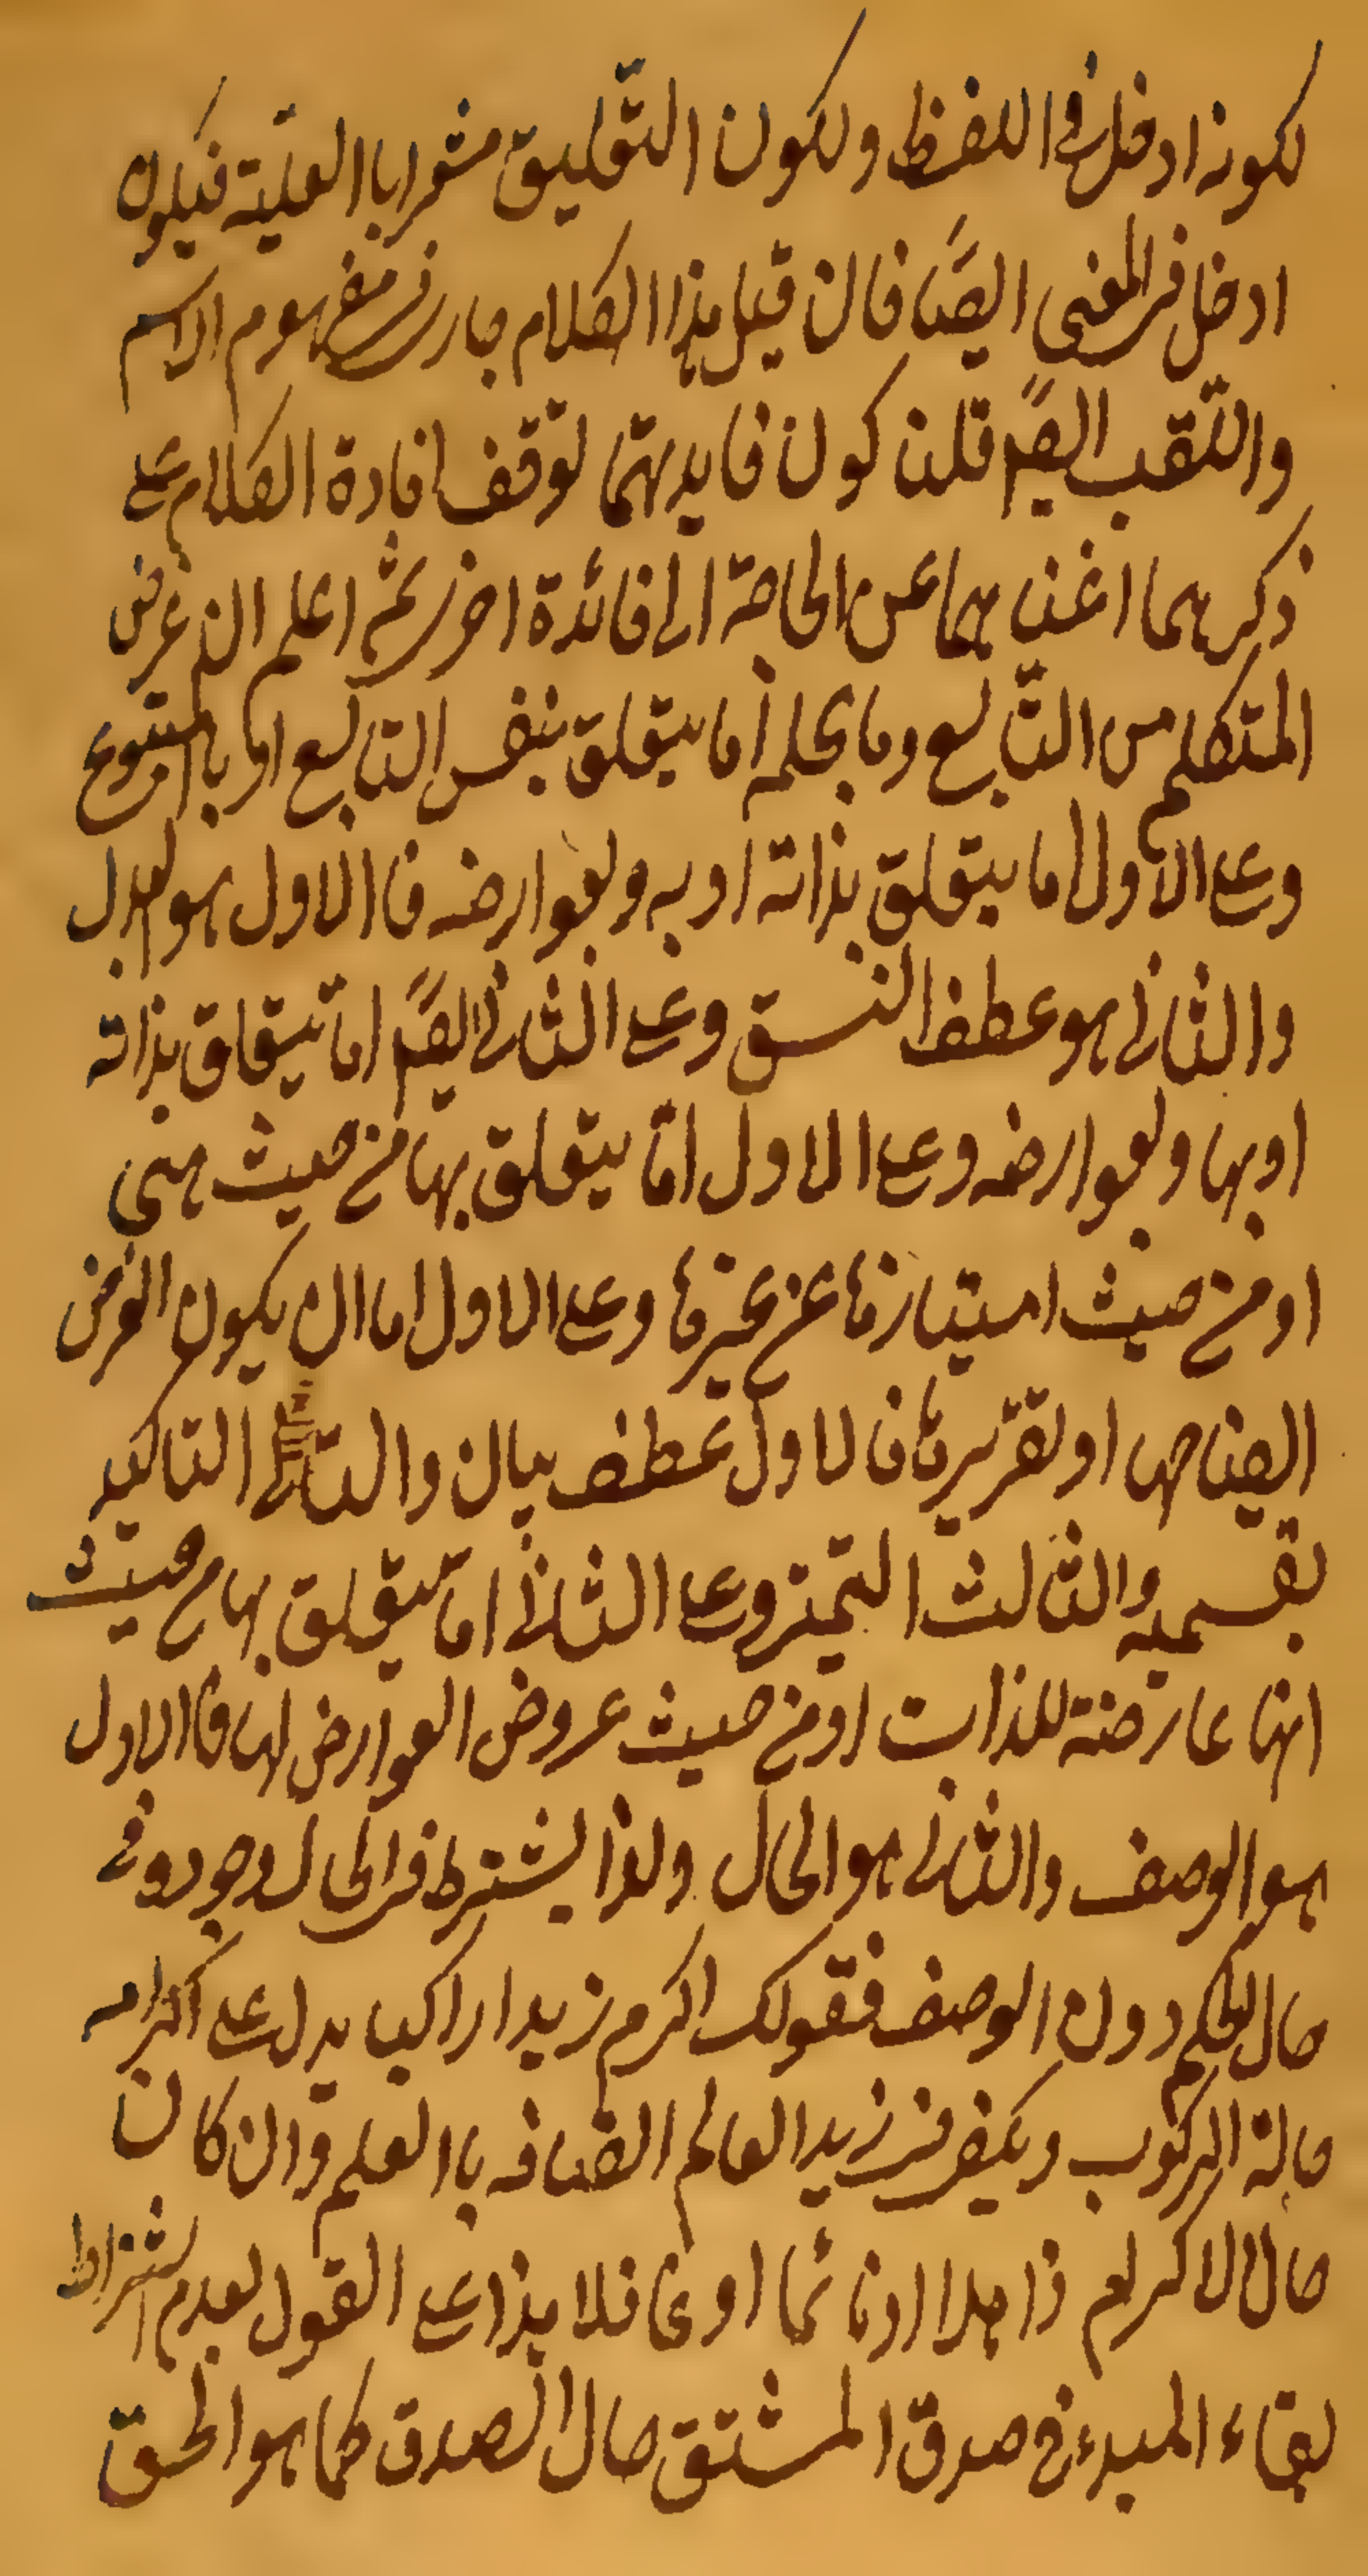 لكونه ادخل فى اللفظ ولكون التعليق مشعرا باالعليّة فيكون
ادخل فى المعنى ايضًا فان قيل هذا الكلام جار فى مفهوم الاسم
واللّقب ايضًا قلنا كون فايدتهما توقف افادة الكلام على
ذكرهما اغنا هما عن الحاجة الى فائدة اخرى ثمّ اعلم ان غرض
المتكلم من التّابع وما بحكمه اما يتعلق بنفس التابع او بالمتبوع
وعلى الاول اما يتعلق بذاته او به وبعوارضه فاالاول هو البدل
والثانى هو عطف النسق وعلى الثانى ايضًا امّا يتعلق بذاته
او بها وبعوارضه وعلى الاول امّا يتعلق بها من حيث هى
او من حيث امتيازها عن غيرها وعلى الاول اما ان يكون الغرض
ايضاحها او تقريرها فالاول عطف بيان والثانى التاكيد
بقسميه والثالث التميز وعلى الثانى امّا يتعلق بها من حيث
انّها عارضة للذات او من حيث عروض العوارض لها فاالاول
هو الوصف والثانى هو الحال ولذا يشترط فى الحال وجوده فى
حال الحكم دون الوصف فقولك اكرم زيدا راكبا يدل على اكرامه
حالة الركوب ويكفى فى زيد العالم اتصافه باالعلم وان كان
حال الاكرام ذاهلا او نائما او غافلا هذا على القول بعدم اشتراط
بقاء المبدء فى صدق المشتق حال الصدق كما هو الحقّ